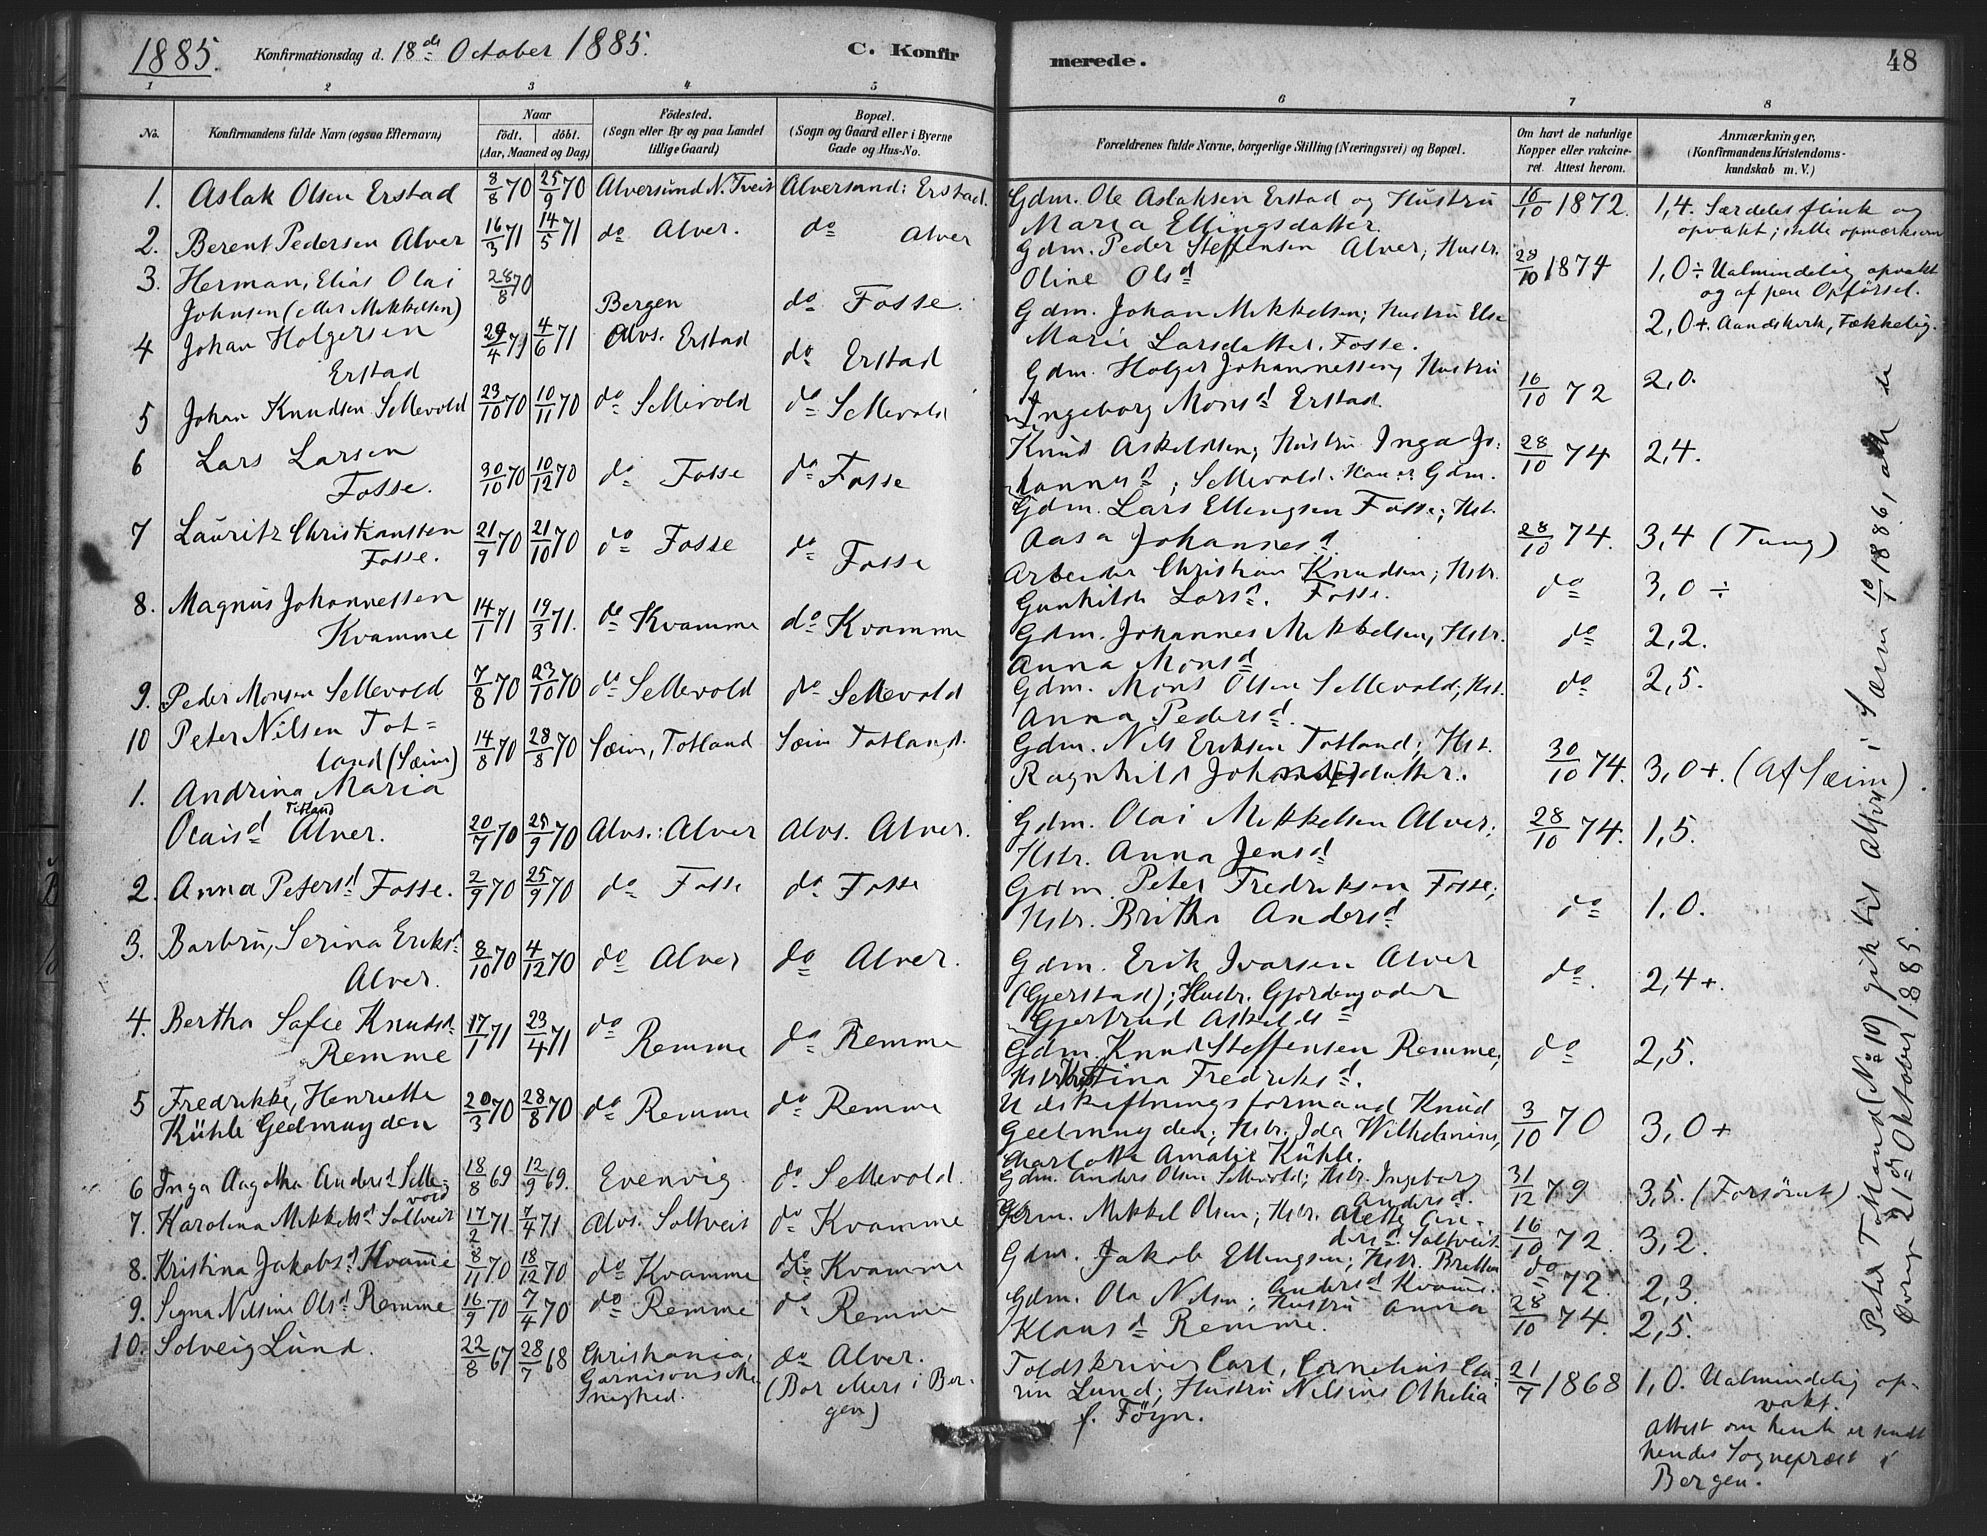 1885. Konfirmationsdag d. 18de October 1885. C. Konfir merede. 48
1 2 3 4 5 6 7 8
No. Konfirmandens fulde Navn (ogsaa Efternavn) Naar født. døbt. (Aar, Maaned og Dag) Födested. (Sogn eller By og paa Landet tillige Gaard) Bopæl. (Sogn og Gaard eller i Byerne Gade og Hus-No. Forældrenes fulde Navne, borgerlige Stilling (Næringsvei) og Bopæl. Om havt de naturlige Kopper eller vakcineret. Attest herom. Anmærkninger, (Konfirmandens Kristendomskundskab m. V.)
1. Aslak Olsen Erstad 8/8 70 25/9 70 Alversund N. Tveit Alversund: Erstad. Gdm. Ole Aslaksen Erstad og Hustru 16/10 1872. 1,4. Særdeles flink og
Maria Ellingsdatter. opvakt; stille opmærksom
2. Berent Pedersen Alver 16/3 71 14/5 71 do Alver. do Alver Gdm. Peder Steffensen Alver; Hustr. 28/10 1874 1,0÷ Ualmindelig opvakt
Oline Olsd og af pen Opførsel.
3. Herman, Elias Olai 28/8 70
Johnsen (eller Mikkelsen) Bergen do Fosse. Gdm. Johan Mikkelsen; Hustru Else 2,0+. Aandssterk, Tækkelig.
Marie Larsdatter. Fosse.
4 Johan Holgersen 29/4 71 4/6 71 Alvs. Erstad do Erstad Gdm. Holger Johannessen, Hustru 16/10 72 2,0.
Erstad Ingeborg Monsd Erstad.
5 Johan Knudsen Sellevold 23/10 70 10/11 70 do Sellevold do Sellevold Knud Askeldsen; Hustru Inga Jo- 28/10 74 2,4.
hannesd; Sellevold. Han er Gdm.
6 Lars Larsen
Fosse. 30/10 70 10/12 70 do Fosse do Fosse Gdm. Lars Ellingsen Fosse; Hst. 28/10 74. 3,4 (Tung)
Aasa Johannesd
7 Lauritz Christianssen 21/9 70 21/10 70 do Fosse do Fosse Arbeider Christian Knudsen; Hstr. do 3,0 ÷
Fosse. Gunhilde Larsd. Fosse.
8. Magnus Johannessen 14/1 71 19/3 71. do Kvamme do Kvamme Gdm. Johannes Mikkelsen, Hstr. do 2,2.
Kvamme Anna Monsd
9. Peder Monsen Sellevold 7/8 70 23/10 70 do Sellevold do Sellevold Gdm. Mons Olsen Sellevold; Hst. do 2,5.
Anna Pedersd.
10 Peter Nilsen Tot=
land (Sæim) 14/8 70 28/8 70 Sæim, Totland Sæim Totland. Gdm. Nils Eriksen Totland; Hst. 30/10 74. 3,0+. (Af Sæim)
Ragnhild datter.
1. Andrina Maria
Olaisd Titland Alver. 20/7 70 25/9 70 Alvs.: Alver Alvs. Alver. Gdm. Olai Mikkelsen Alver; 28/10 74. 1,5.
Hstr. Anna Jensd
2. Anna Petersd Fosse. 2/9 70 25/9 70 do Fosse do Fosse Gdm. Peter Fredriksen Fosse; do 1,0.
Hstr. Britha Andersd
3. Barbru, Serina Eriksd 8/10 70 4/12 70 do Alver do Alver. Gdm. Erik Ivarsen Alver do. 2,4+.
Alver. (Gjerstad); Hustr. Gjorden, oder
Gjertrud Askeldsd
4. Bertha Sofie Knudsd 17/1 71 23/4 71 do Remme do Remme Gdm. Knud Steffensen Remme, do 2,5.
Remme Fredriksd.
5 Fredrikke, Henriette 20/3 70 28/8 70 do Remme do Remme Udskiftningsformand Knud 3/10 70 3,0+
Kühle Geelmuyden Geelmuyden; Hstr. Ida Wilhelmine,
Charlotte Amalie Kühle.
6 Inga Aagotha Andersd Selle- 18/8 69 12/9 69. Evenvig. do Sellevold. Gdm. Anders Olsen Sellevold; Hstr. Ingeborg 31/12 79 3,5. (Forsömt)
vold Andersd.
7. Karolina Mikkelsd Soltveit 17/2 71. 7/4 71 Alvs. Soltveit do Kvamme Gdm. Mikkel Olsen; Hstr. Alette An- 16/10 72. 3,2.
dersd. Soltveit
8. Kristina Jakobsd Kvamme 8/11 70 18/12 70 do Kvamme do Kvamme Gdm. Jakob Ellingsen; Hstr. Britha do 72. 2,3.
Andersd Kvamme.
9. Signa Nilsine Olsd Remme 16/9 70 7/4 70 do Remme do Remme Gdm. Ola Nilsen; Hustru Anna 28/10 74. 2,5.
Klausd Remme.
10. Solveig Lund. 22/8 67 28/7 68 Christiania, do Alver. Toldskriver Carl, Cornelius 21/7 1868 1,0. Ualmindelig op-
Garnisons Me- (Bor ellers i Ber- Lund; Hustru Nilsine Othelia vakt.
nighed. gen) f. Föyn. Attest om hende er sendt
hendes Sognepræst i
Bergen.
Peter Totland (No 10) gik til Alters i Sæim 10/1 1886, alle de
Øvrige 21de Oktober 1885.